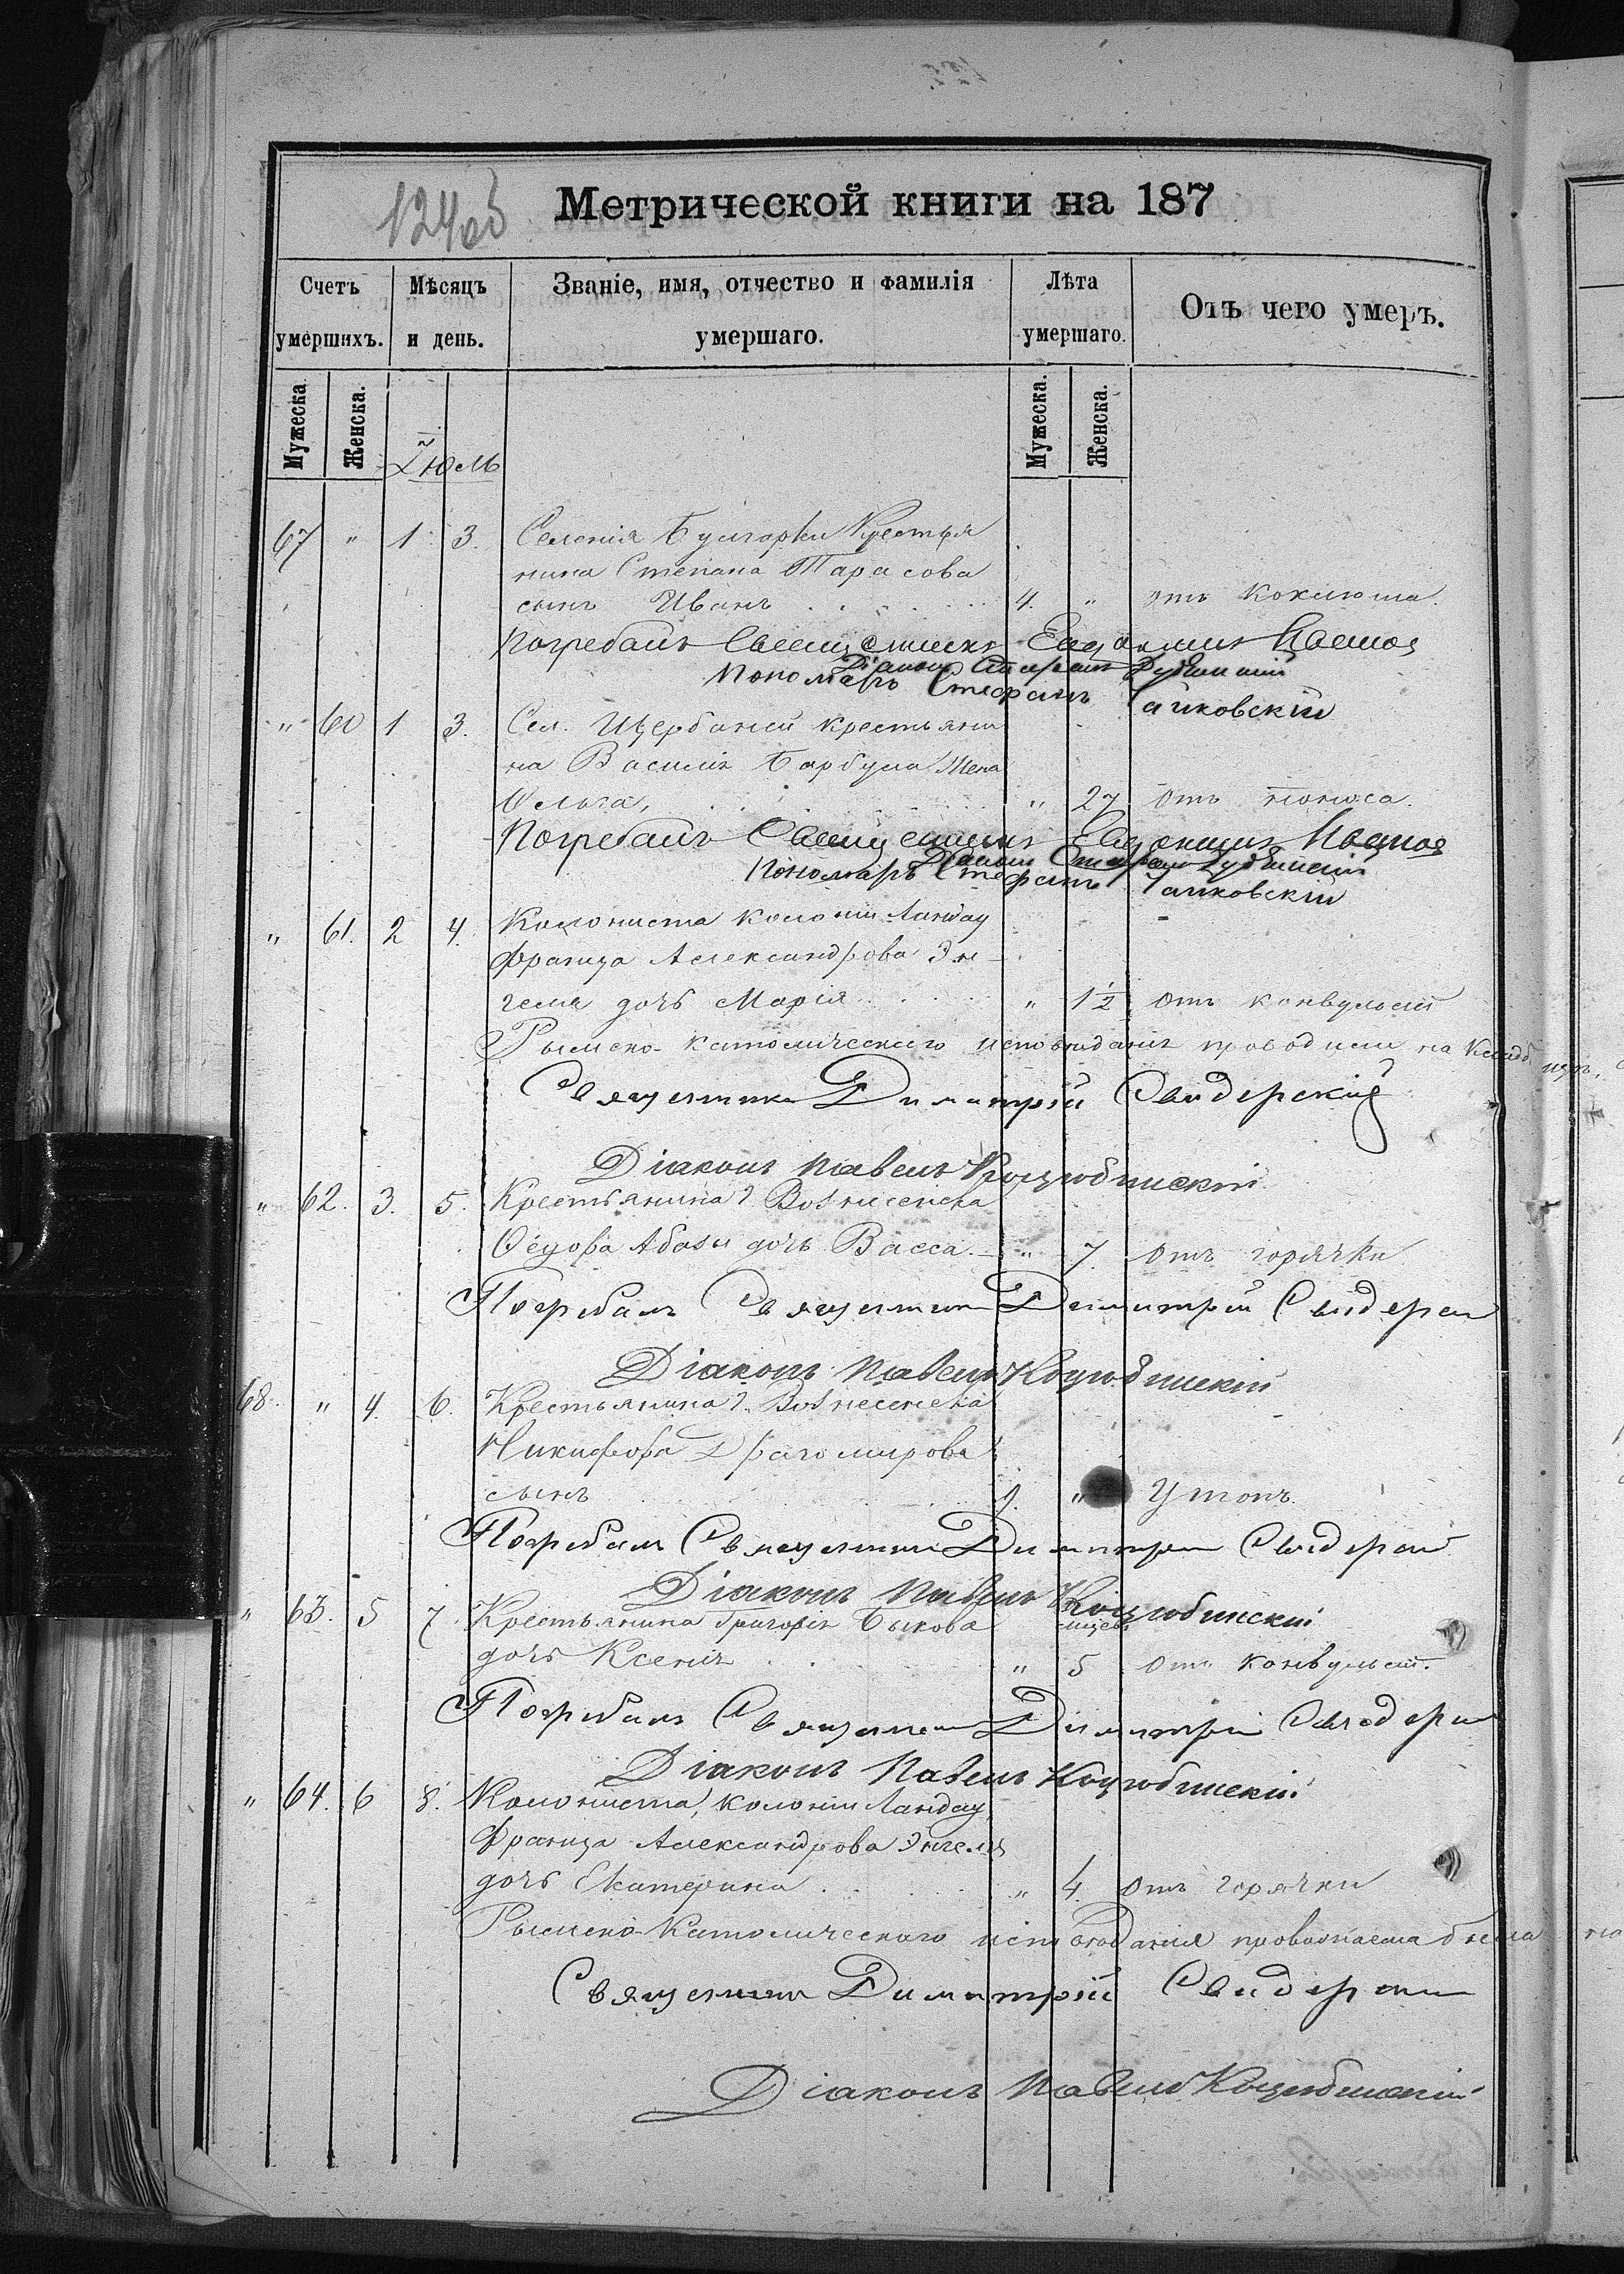 124об
Метрической книги на 187
Счетъ умершихъ. Мѣсяцъ и день. Званіе, имя, отчество и фамилія умершаго. Лѣта умершаго. Отъ чего умеръ.
Мужеска Женска. Іюль Мужеска. Женска.
67 " 1 3. Селенія Булгарки Крестья
нина Степана Тарасова
сынъ Иванъ 4. " отъ коклюша.
Погребалъ Священникъ Евдокимъ
Діаконъ
Пономарь Стефанъ Чайковскій
" 60 1 3. Сел. Щербаней крестьяни
на Василія Барбула жена
Ольга, " 27 отъ поноса.
Погребалъ Священникъ Евдокимъ
Діаконъ
Пономарь Стефанъ Чайковскій
" 61. 2 4. Колониста колоніи Ландау
Франца Александрова Эн
геля дочь Марія " 1½ отъ конвульсій
Римско-католическаго исповѣданія проводили на кладб
Священникъ Димитрій Свидерскій
Діаконъ Павелъ Коцюбинскій
" 62. 3. 5. Крестьянина г. Вознесенска
Ѳедора Абазы дочь Васса. " 7. отъ горячки
Погребалъ Священникъ Димитрій
Діаконъ Павелъ Коцюбинскій
68. " 4. 6. Крестьянина г. Вознесенска
Никифора Драгомирова
сынъ " Утопъ.
Погребалъ Священникъ Димитрій
Діаконъ Павелъ Коцюбинскій
" 63. 5 7. Крестьянина Григорія Быкова
дочь Ксенія " 5 отъ конвульсій.
Погребалъ Священникъ Димитрій
Діаконъ Павелъ Коцюбинскій
" 64. 6 8. Колониста, колоніи Ландау
Франца Александрова Энгеля
дочь Екатерина " 4. отъ горячки
Римско-Католическаго исповѣданія
Священникъ Димитрій
Діаконъ Павелъ Коцюбинскій